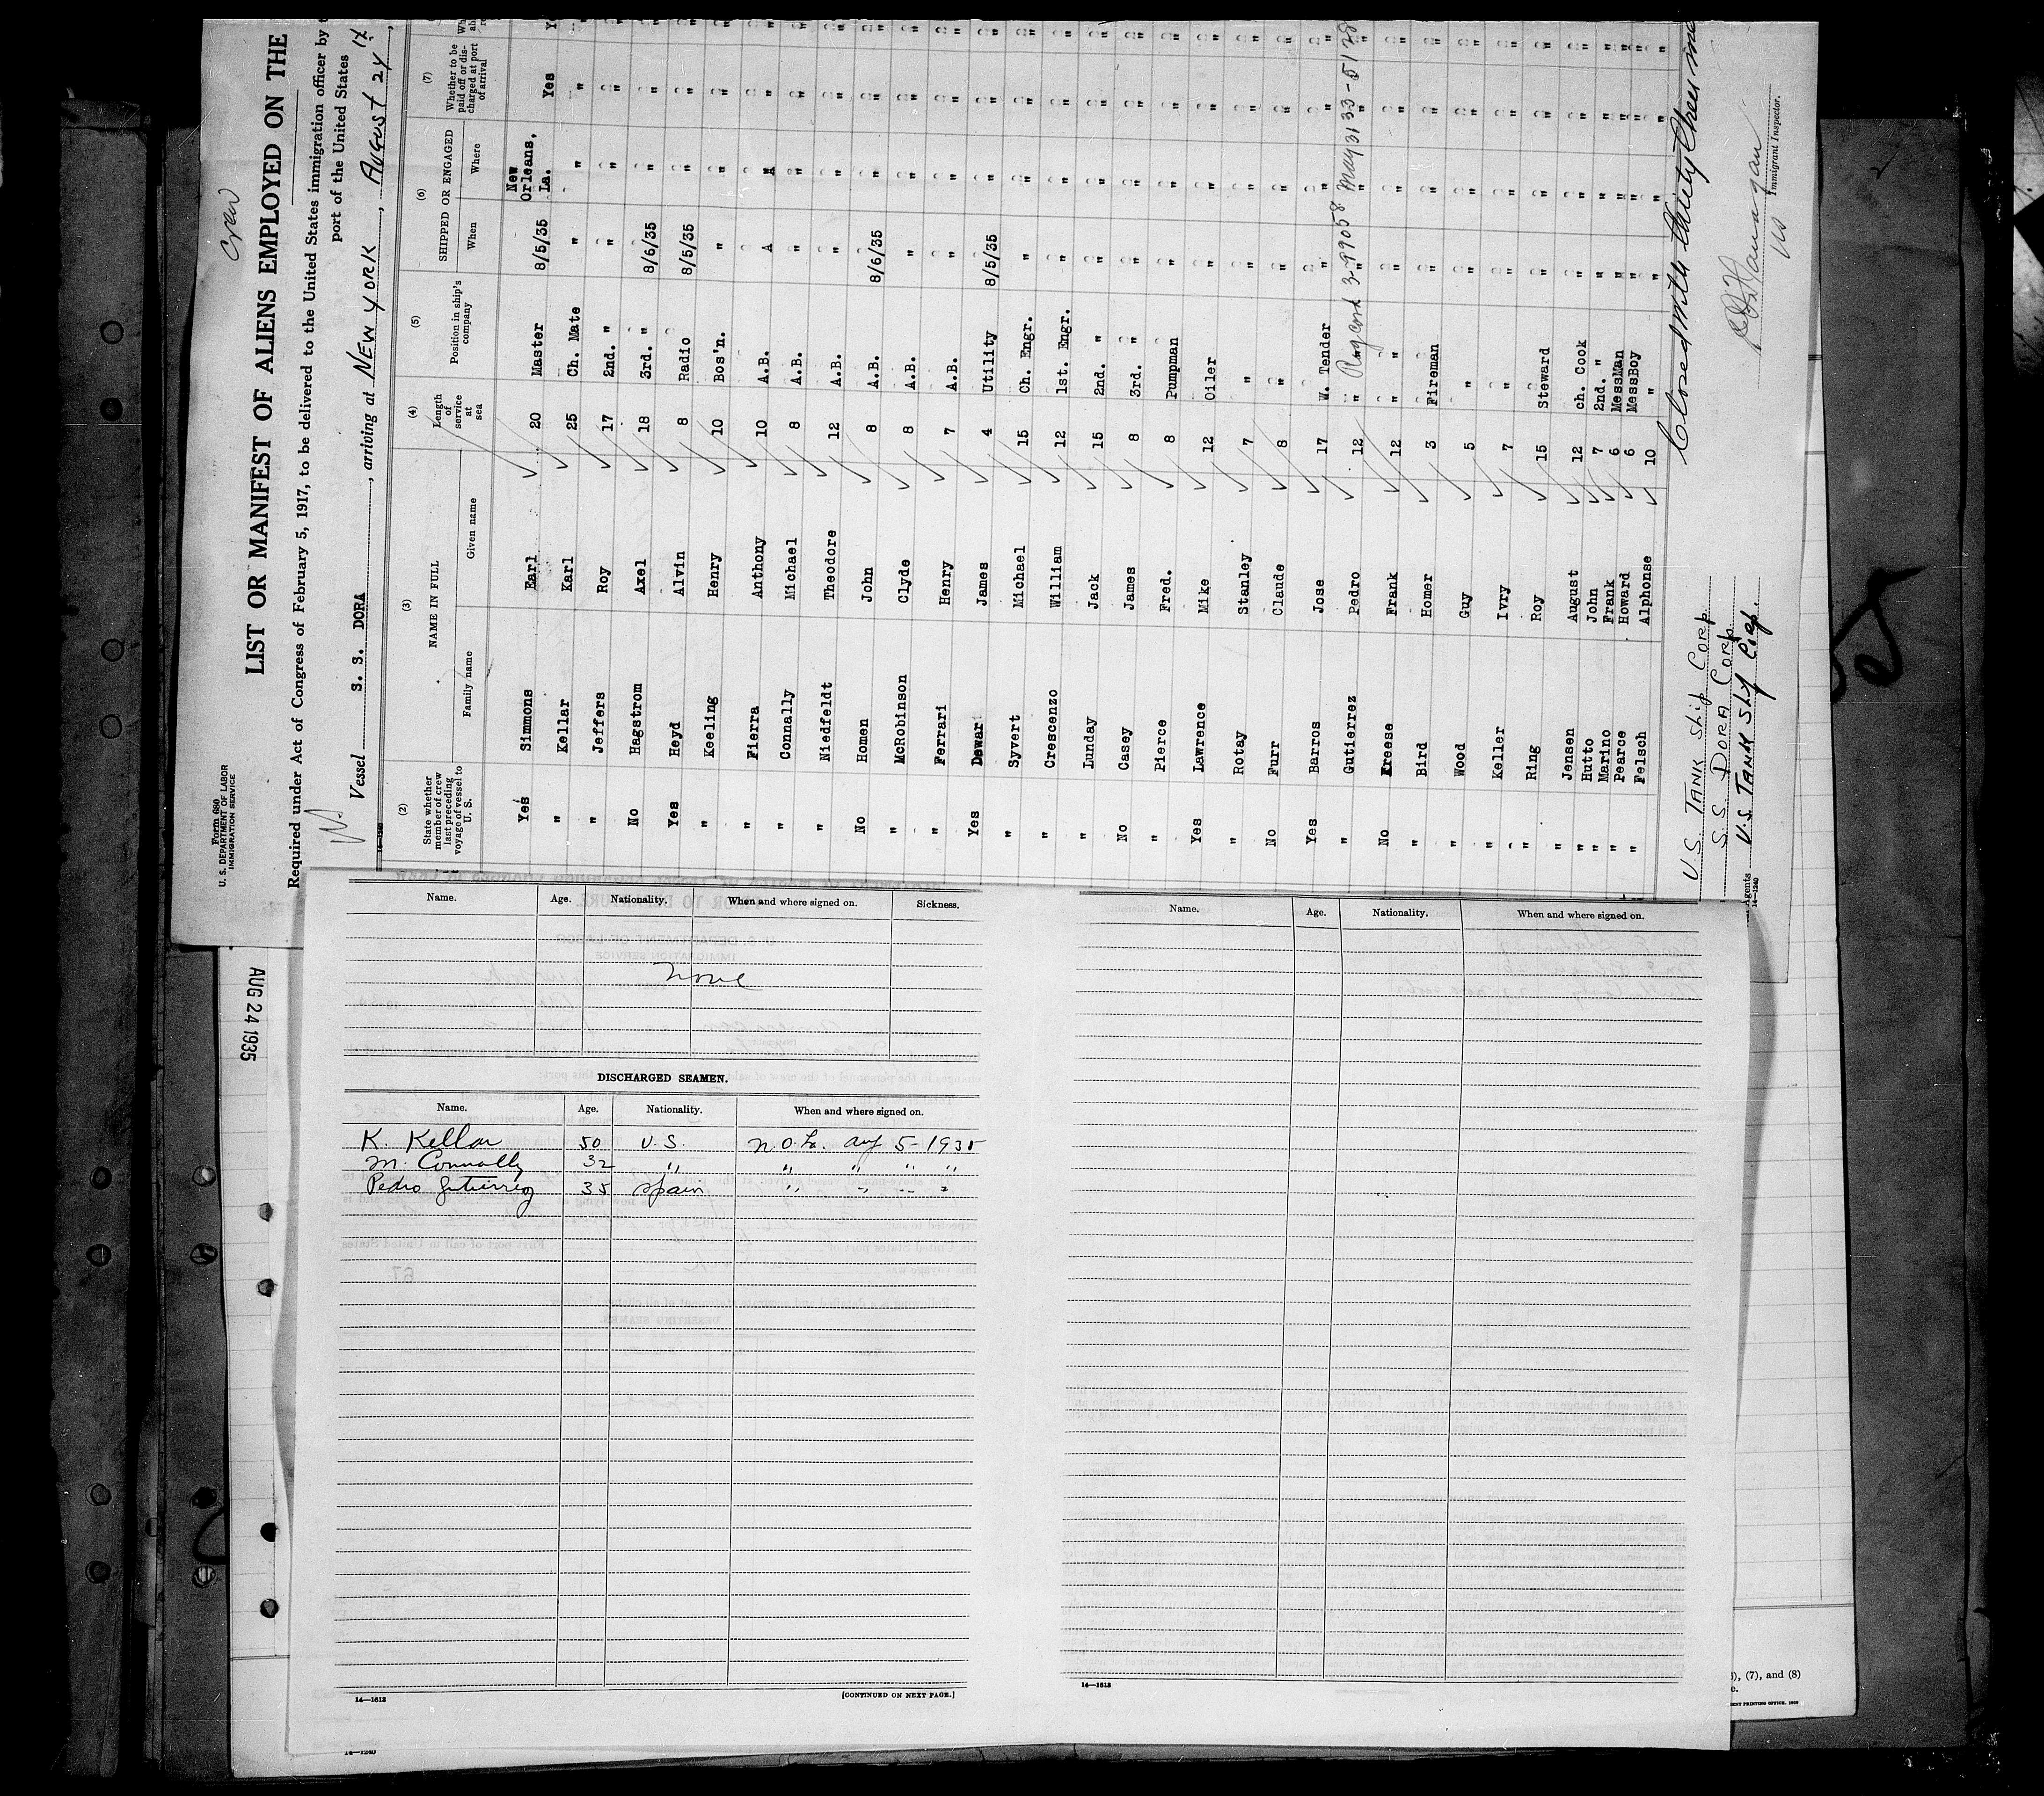 Form 680
U. S. DEPARTMENT OF LABOR
IMMIGRATION SERVICE
Crew
LIST OR MANIFEST OF ALIENS EMPLOYED ON THE
Required under Act of Congress of February 5, 1917, to be delivered to the United States immigration officer by
port of the United States
Vessel S. S. DORA, arriving at NEW YORK, AUGUST 24
14-1240
(2) (3) (4) (5) (6) (7)
State whether member of crew last preceding voyage of vessel to U. S. NAME IN FULL Length of service at sea Position in ship's company SHIPPED OR ENGAGED Whether to be paid off or discharged at port of arrival
Family name Given name When Where
Yes Simmons Earl 20 Master 8/5/35 New Orleans, La. Yes
" Kellar Karl 25 Ch. Mate " " "
" Jeffers Roy 17 2nd. " " " "
No Hagstrom Axel 18 3rd. " 8/6/35 " "
Yes Heyd Alvin 8 Radio 8/5/35 " "
" Keeling Henry 10 Bos'n. " " "
" Fierra Anthony 10 A.B. " " "
" Connally Michael 8 A.B. " " "
" Niedfeldt Theodore 12 A.B. " " "
No Homen John 8 A.B. 8/6/35 " "
" McRobinson Clyde 8 A.B. " " "
" Ferrari Henry 7 A.B. " " "
Yes Dewar James 4 Utility 8/5/35 " "
" Syvert Michael 15 Ch. Engr. " " "
" Crescenzo William 12 1st. Engr. " " "
" Lunday Jack 15 2nd. " " " "
No Casey James 8 3rd. " " " "
" Pierce Fred. 8 Pumpman " " "
Yes Lawrence Mike 12 Oiler " " "
" Rotay Stanley 7 " " " "
No Furr Claude 8 " " " "
Yes Barros Jose 17 W. Tender " " "
" Gutierrez Pedro 12 " " " "
No Freese Frank 12 " " " "
" Bird Homer 3 Fireman " " "
" Wood Guy 5 " " " "
" Keller Ivry 7 " " " "
" Ring Roy 15 Steward " " "
" Jensen August 12 ch. Cook " " "
" Hutto John 7 2nd. " " " "
" Marino Frank 6 MessMan " " "
" Pearce Howard 6 MessBoy " " "
" Felsch Alphonse 10 " " " "
U.S. TANK Ship Corp
S.S. DORA Corp
Agents U.S. TANK Ship Corp.
14-1240
Closed with
Immigrant Inspector.
AUG 24 1935
Name. Age. Nationality. When and where signed on. Sickness.
None
DISCHARGED SEAMEN.
Name. Age. Nationality. When and where signed on.
K. Kellar 50 U.S. N.O. La. Aug 5-1935
M. Connally 32 " " " " "
Pedro Gutierrez 35 Spain " " " "
14—1613
[CONTINUED ON NEXT PAGE.]
14—1240
Name. Age. Nationality. When and where signed on.
14—1613
), (7), and (8)